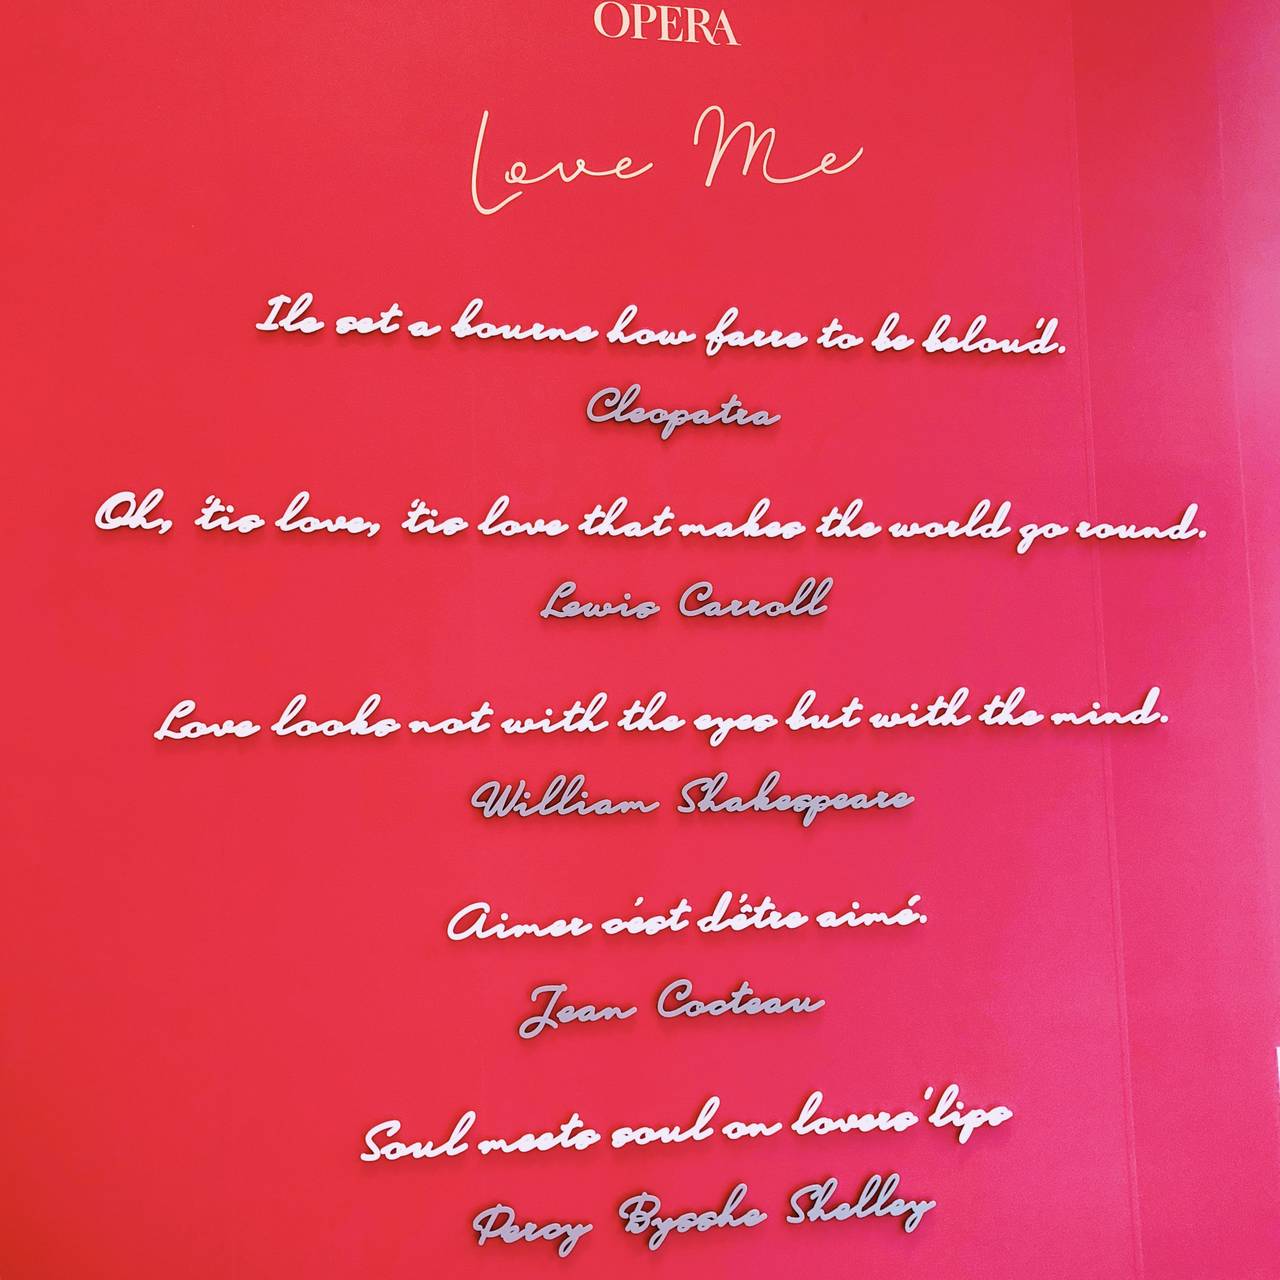 OPERA
Love Me
Ile set a bourne how farre to be belou'd.
Cleopatra
Oh, 'tis love, 'tis love that makes the world go round.
Lewis Carroll
Love looks not with the eyes but with the mind.
William Shakespeare
Aimer c'ést d'être aimé.
Jean Cocteau
Soul meets soul on lovers' lips
Percy Bysshe Shelley